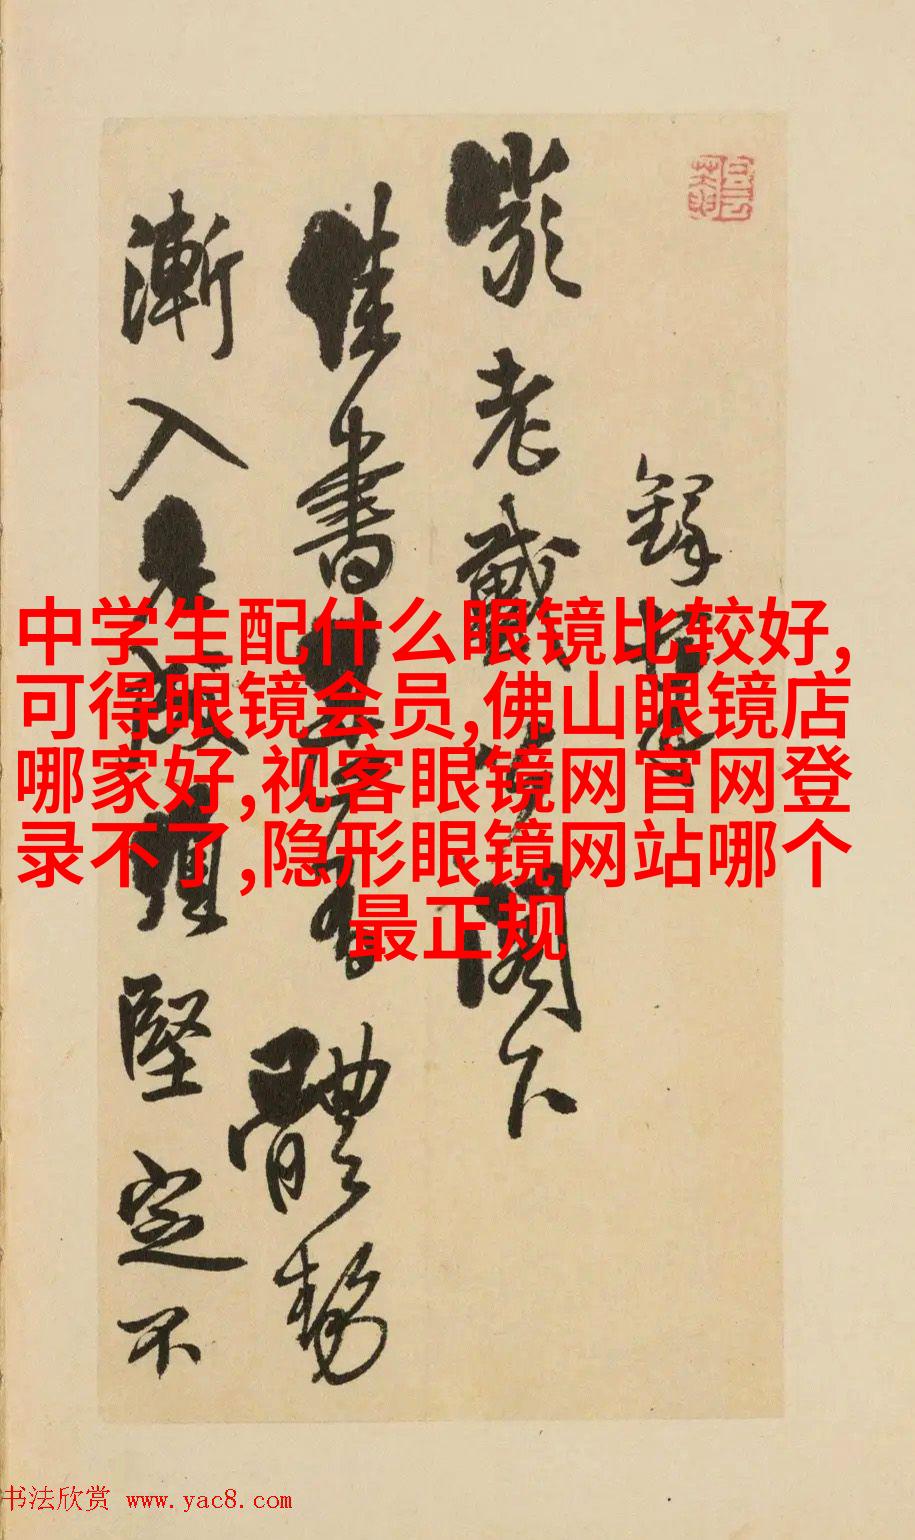 鐸
老戴閣下
佳書體勢
漸入堅定不
中学生配什么眼镜比较好,
可得眼镜会员,佛山眼镜店
哪家好,视客眼镜网官网登
录不了,隐形眼镜网站哪个
最正规
书法欣赏 www.yac8.com